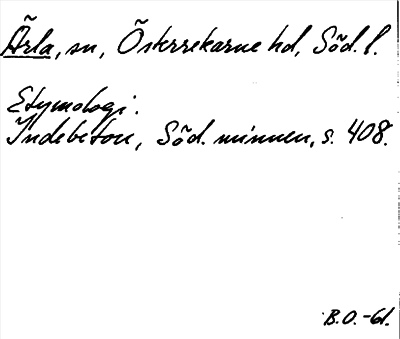 Ärla, sn, Österrekarne hd, Söd. l.
Etymologi.
Indebetou, Söd. minnen, s. 408.
B.O.-61.